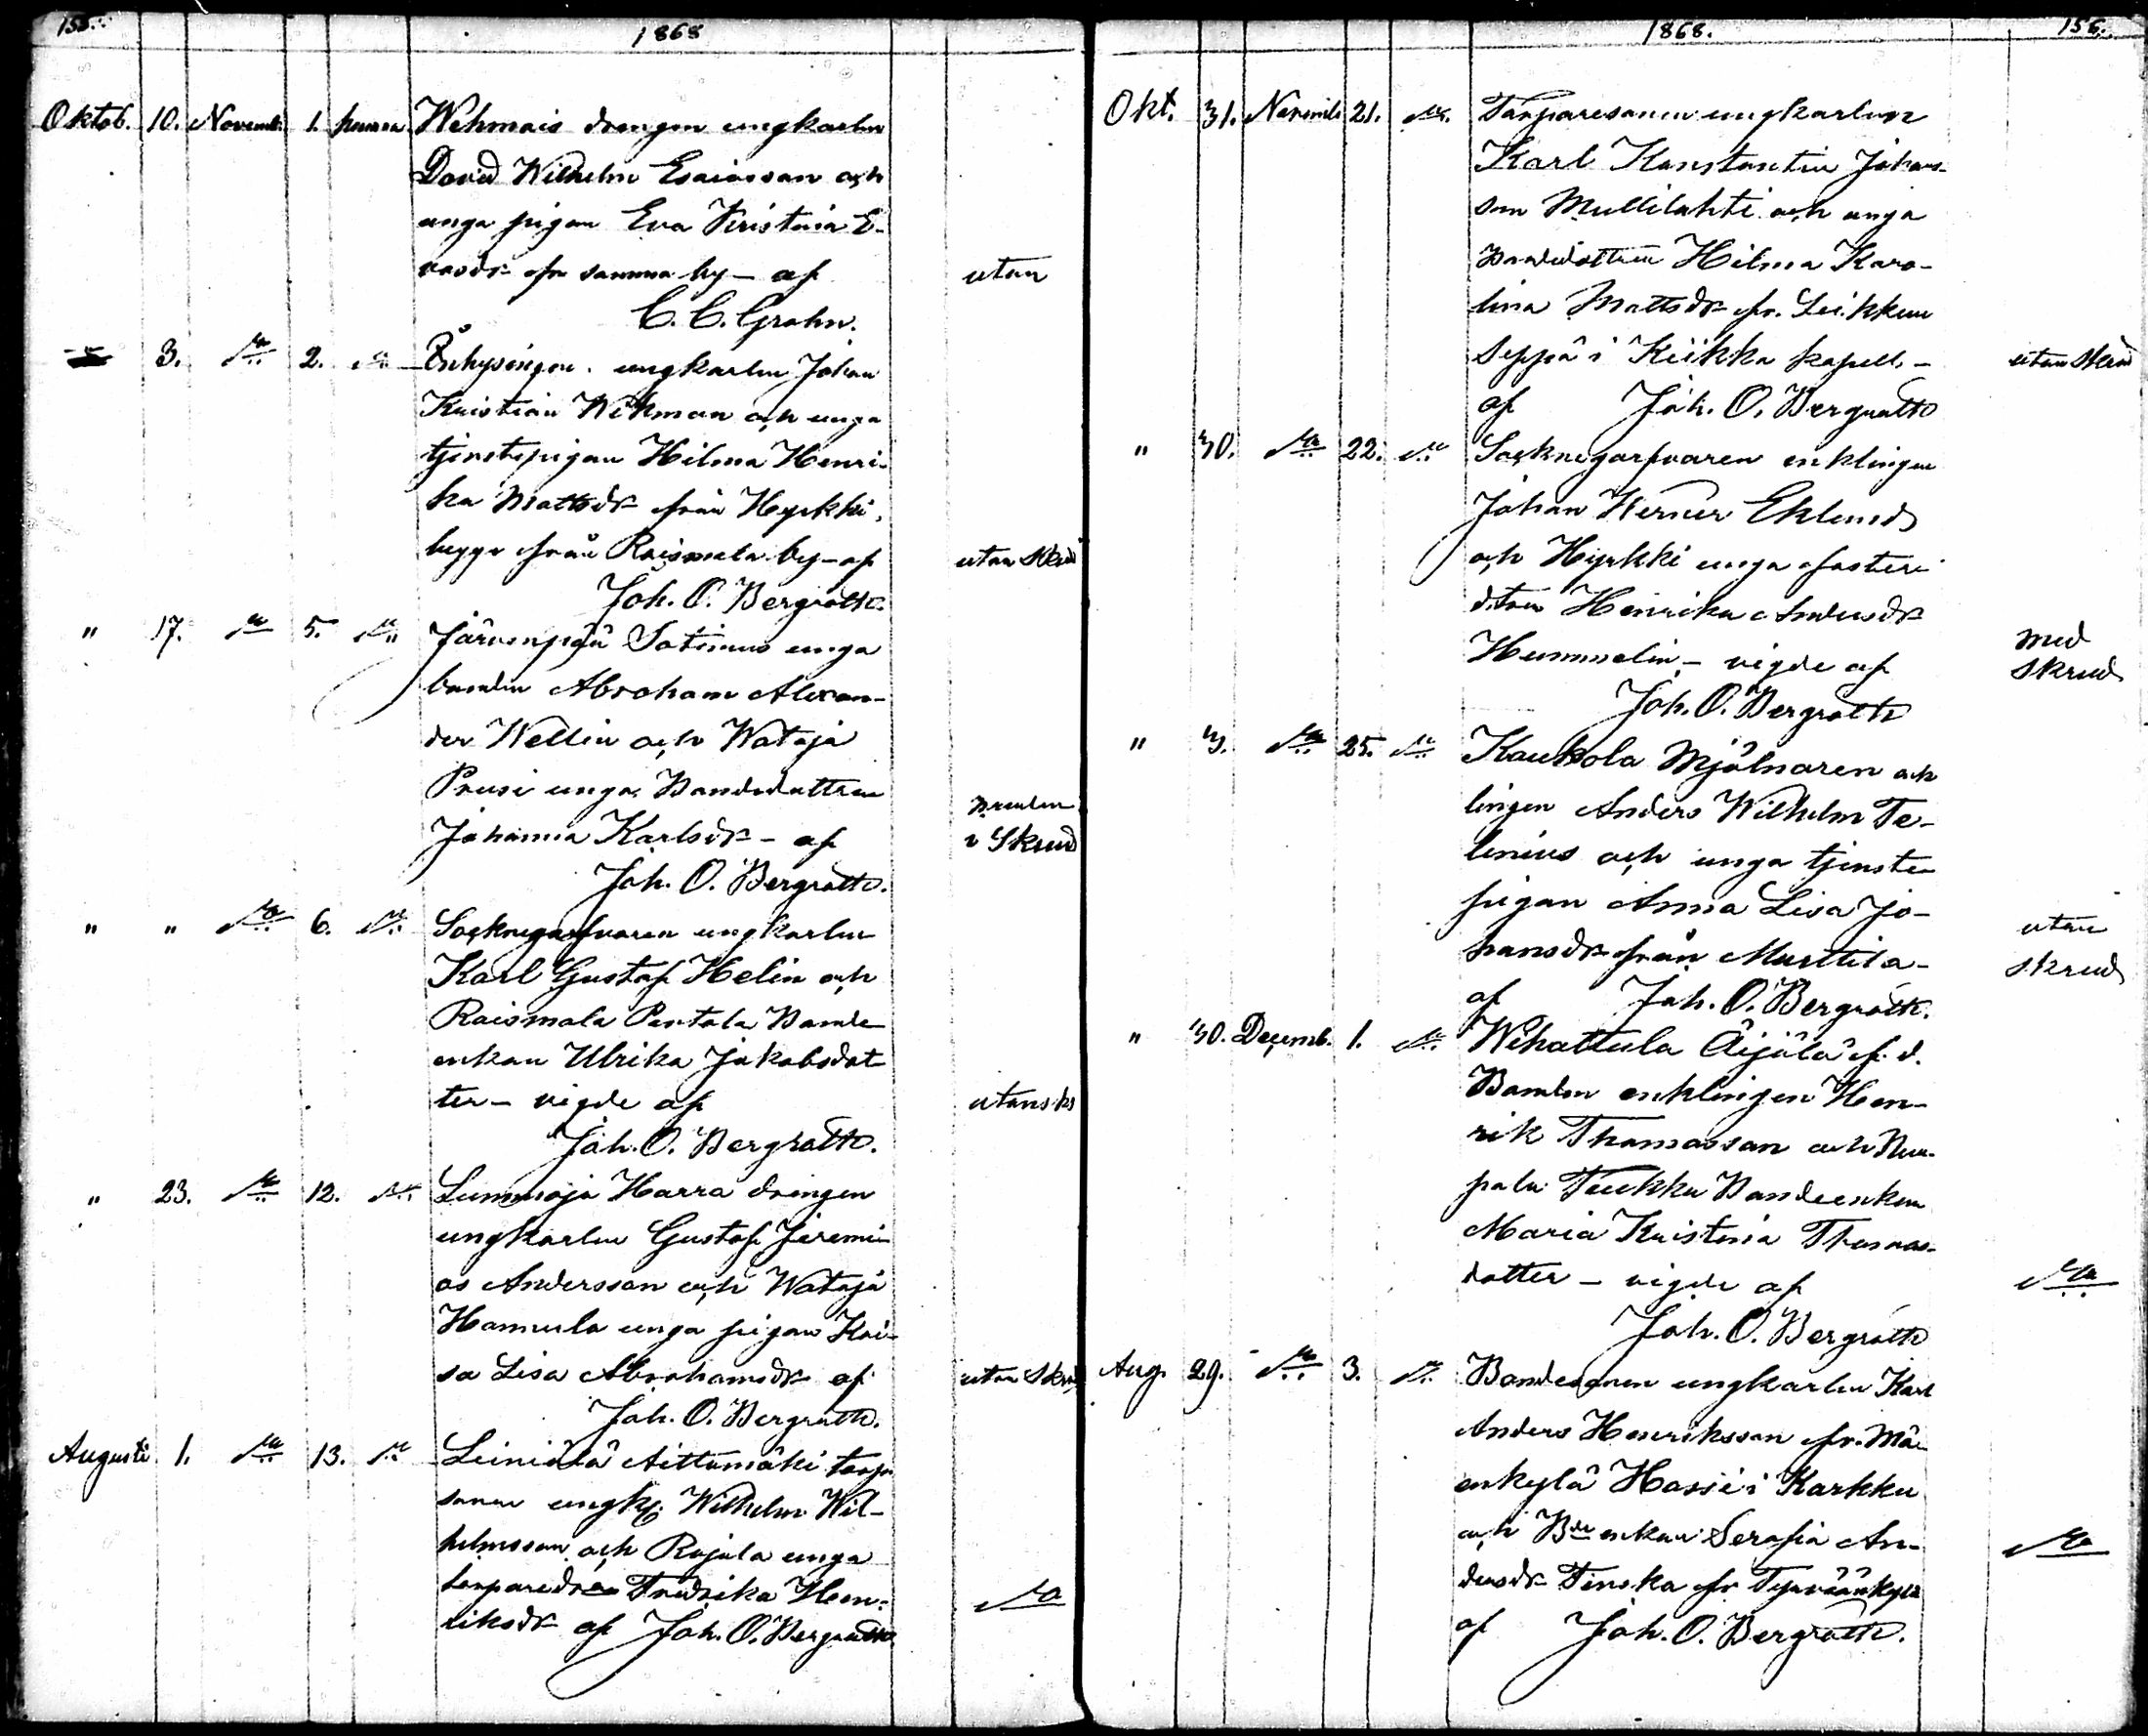 155.
1868
Oktob. 10. Novemb. 1. hemma Wehmais drengen ungkarlen
David Wilhelm Esaiasson och
unga pigan Eva Kristina E-
vasdr fr samma by - af utan
C. C. Grohn.
3. do 2. do Inhysingen ungkarlen Johan
Kristian Wikman och unga
tjenstepigan Hilma Henri-
ka Mattsdr från Hyrkki,
begge från Raismala by - af utan Skrud
Joh. O. Bergroth.
" 17. do 5. do Järvenpää Sotimus unga
bonden Abraham Alexan-
der Wellin och Wataja
Prusi unga Bondedottren bruden
Johanna Karlsdr - af i Skrud
Joh. O. Bergroth.
" " do 6. do Socknegarfvaren ungkarlen
Karl Gustaf Helin och
Raismala Pentala Bonde
enkan Ulrika Jakobsdot
ter - vigde af utan sk
Joh. O. Bergroth.
" 23. do 12. do Lummaja Harra drengen
ungkarlen Gustaf Jeremi-
as Andersson och Wataja
Hannula unga pigan Kai-
sa Lisa Abrahamsdr af utan Skrud
Joh. O. Bergroth.
Augusti 1. do 13. do Leiniälä Aittamäki torp
sonen ungk. Wilhelm Wil-
helmsson och Rajala unga
torparedrn Fredrika Hen- do
riksdr af Joh. O. Bergroth
1868. 156.
Okt. 31. Novemb. 21. do. Torparesonen ungkarlen
Karl Konstantin Johans-
son Mullilahti och unga
Bondedottren Hilma Karo-
lina Mattsdr fr. Leikkuu
Seppä i Kiikka kapell. - utan Skrud
af Joh. O. Bergroth
" 30. do 22. do Socknegarfvaren enklingen
Johan Werner Eklund
och Hyrkki unga foster
dtren Henrika Andersdr
Hummelin - vigde af med Skrud
Joh. O. Bergroth
" 3. do 25. do Kaukola Mjölnaren enk
lingen Anders Wilhelm Te-
lenius och unga tjenste
pigan Anna Lisa Jo-
hansdr från Marttila - utan Skrud
af Joh. O. Bergroth.
" 30. Decemb. 1. do Wihattula Äijälä f. d.
Bonden enklingen Hen-
rik Thomasson och Nuu-
pala Tuukku Bondeenkan
Maria Kristina Thomas-
dotter - vigde af do
Joh. O. Bergroth
Aug. 29. do 3. do Bondesonen ungkarlen Karl
Anders Henriksson fr. Mä-
enkylä Hassi i Karkku
och Bde enkan Serafia An- do
dersdr Tinska fr Tyrväänkylä
af Joh. O. Bergroth.